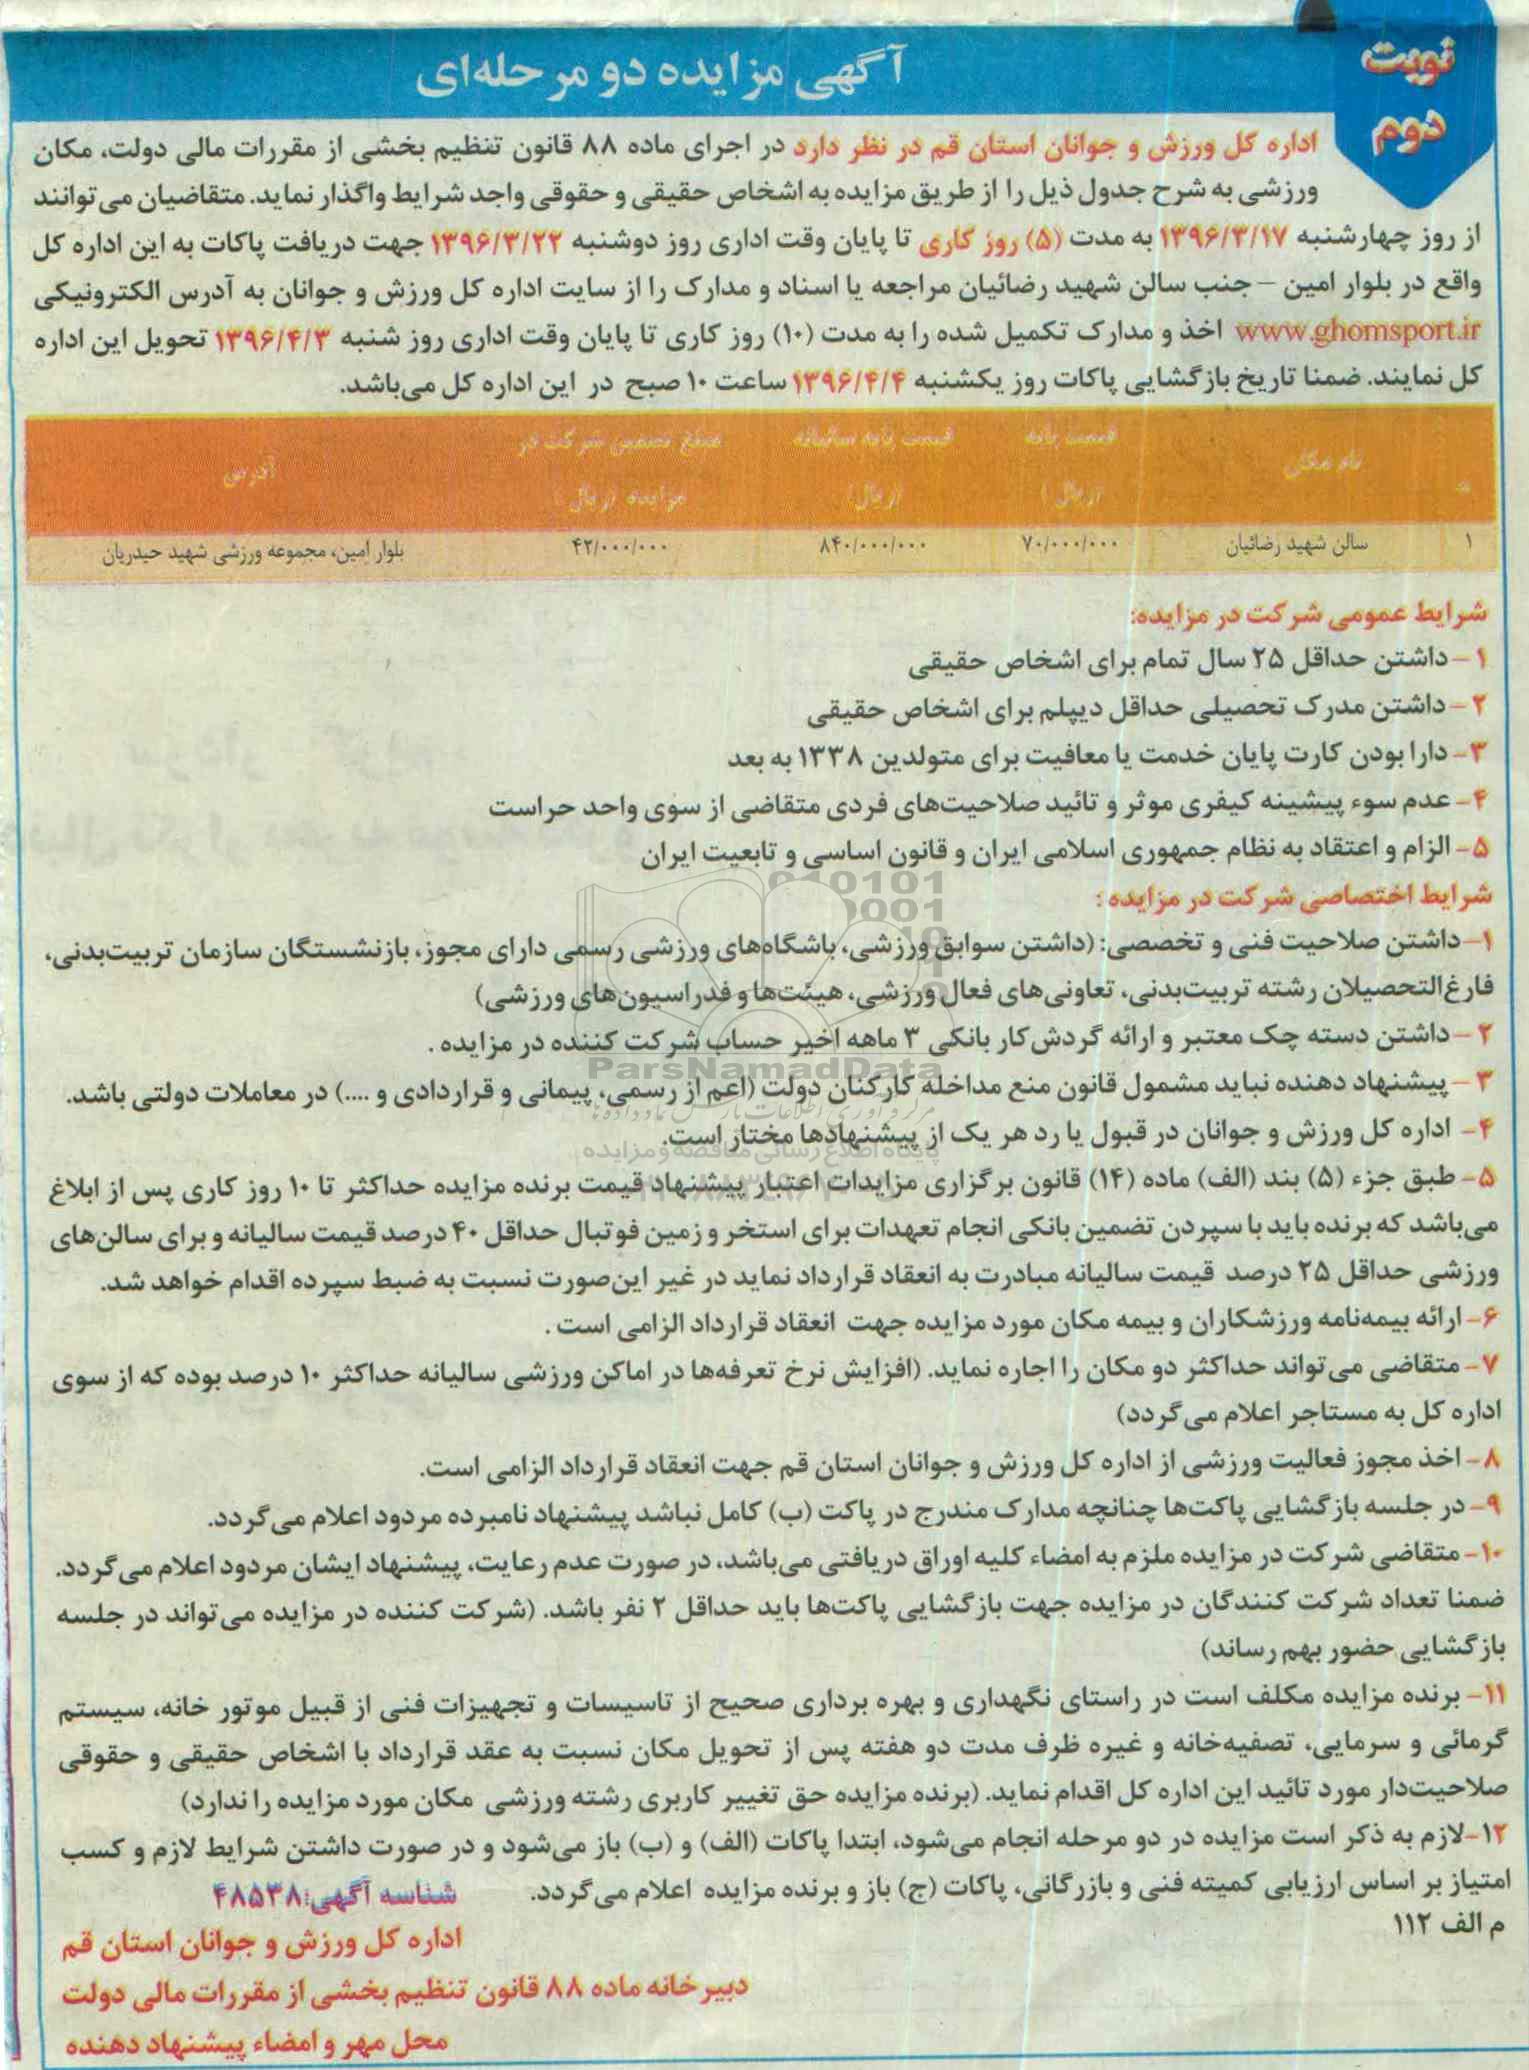 نوبت
دوم
آگهی مزایده دو مرحله‌ای
اداره کل ورزش و جوانان استان قم در نظر دارد در اجرای ماده ۸۸ قانون تنظیم بخشی از مقررات مالی دولت، مکان
ورزشی به شرح جدول ذیل را از طریق مزایده به اشخاص حقیقی و حقوقی واجد شرایط واگذار نماید. متقاضیان می‌توانند
از روز چهارشنبه ۱۳۹۶/۳/۱۷ به مدت (۵) روز کاری تا پایان وقت اداری روز دوشنبه ۱۳۹۶/۳/۲۲ جهت دریافت پاکات به این اداره کل
واقع در بلوار امین – جنب سالن شهید رضائیان مراجعه یا اسناد و مدارک را از سایت اداره کل ورزش و جوانان به آدرس الکترونیکی
www.ghomsport.ir اخذ و مدارک تکمیل شده را به مدت (۱۰) روز کاری تا پایان وقت اداری روز شنبه ۱۳۹۶/۴/۳ تحویل این اداره
کل نمایند. ضمنا تاریخ بازگشایی پاکات روز یکشنبه ۱۳۹۶/۴/۴ ساعت ۱۰ صبح در این اداره کل می‌باشد.
نام مکان
قیمت پایه (ریال)
قیمت پایه سالیانه (ریال)
مبلغ تضمین شرکت در مزایده (ریال)
آدرس
۱ سالن شهید رضائیان ۷۰/۰۰۰/۰۰۰ ۸۴۰/۰۰۰/۰۰۰ ۴۲/۰۰۰/۰۰۰ بلوار امین، مجموعه ورزشی شهید حیدریان
شرایط عمومی شرکت در مزایده:
۱- داشتن حداقل ۲۵ سال تمام برای اشخاص حقیقی
۲- داشتن مدرک تحصیلی حداقل دیپلم برای اشخاص حقیقی
۳- دارا بودن کارت پایان خدمت یا معافیت برای متولدین ۱۳۳۸ به بعد
۴- عدم سوء پیشینه کیفری موثر و تائید صلاحیت‌های فردی متقاضی از سوی واحد حراست
۵- الزام و اعتقاد به نظام جمهوری اسلامی ایران و قانون اساسی و تابعیت ایران
شرایط اختصاصی شرکت در مزایده :
۱-داشتن صلاحیت فنی و تخصصی: (داشتن سوابق ورزشی، باشگاه‌های ورزشی رسمی دارای مجوز، بازنشستگان سازمان تربیت‌بدنی،
فارغ‌التحصیلان رشته تربیت‌بدنی، تعاونی‌های فعال ورزشی، هیئت‌ها و فدراسیون‌های ورزشی)
۲- داشتن دسته چک معتبر و ارائه گردش‌کار بانکی ۳ ماهه اخیر حساب شرکت کننده در مزایده .
ParsNamadData
۳- پیشنهاد دهنده نباید مشمول قانون منع مداخله کارکنان دولت (اعم از رسمی، پیمانی و قراردادی و ....) در معاملات دولتی باشد.
۴- اداره کل ورزش و جوانان در قبول یا رد هر یک از پیشنهادها مختار است.
پایگاه اطلاع رسانی مناقصه و مزایده
۵- طبق جزء (۵) بند (الف) ماده (۱۴) قانون برگزاری مزایدات اعتبار پیشنهاد قیمت برنده مزایده حداکثر تا ۱۰ روز کاری پس از ابلاغ
می‌باشد که برنده باید با سپردن تضمین بانکی انجام تعهدات برای استخر و زمین فوتبال حداقل ۴۰ درصد قیمت سالیانه و برای سالن‌های
ورزشی حداقل ۲۵ درصد قیمت سالیانه مبادرت به انعقاد قرارداد نماید در غیر این‌صورت نسبت به ضبط سپرده اقدام خواهد شد.
۶- ارائه بیمه‌نامه ورزشکاران و بیمه مکان مورد مزایده جهت انعقاد قرارداد الزامی است .
۷- متقاضی می‌تواند حداکثر دو مکان را اجاره نماید. (افزایش نرخ تعرفه‌ها در اماکن ورزشی سالیانه حداکثر ۱۰ درصد بوده که از سوی
اداره کل به مستاجر اعلام می‌گردد)
۸- اخذ مجوز فعالیت ورزشی از اداره کل ورزش و جوانان استان قم جهت انعقاد قرارداد الزامی است.
۹- در جلسه بازگشایی پاکت‌ها چنانچه مدارک مندرج در پاکت (ب) کامل نباشد پیشنهاد نامبرده مردود اعلام می‌گردد.
۱۰- متقاضی شرکت در مزایده ملزم به امضاء کلیه اوراق دریافتی می‌باشد، در صورت عدم رعایت، پیشنهاد ایشان مردود اعلام می‌گردد.
ضمنا تعداد شرکت کنندگان در مزایده جهت بازگشایی پاکت‌ها باید حداقل ۲ نفر باشد. (شرکت کننده در مزایده می‌تواند در جلسه
بازگشایی حضور بهم رساند)
۱۱- برنده مزایده مکلف است در راستای نگهداری و بهره برداری صحیح از تاسیسات و تجهیزات فنی از قبیل موتور خانه، سیستم
گرمائی و سرمایی، تصفیه‌خانه و غیره ظرف مدت دو هفته پس از تحویل مکان نسبت به عقد قرارداد با اشخاص حقیقی و حقوقی
صلاحیت‌دار مورد تائید این اداره کل اقدام نماید. (برنده مزایده حق تغییر کاربری رشته ورزشی مکان مورد مزایده را ندارد)
۱۲-لازم به ذکر است مزایده در دو مرحله انجام می‌شود، ابتدا پاکات (الف) و (ب) باز می‌شود و در صورت داشتن شرایط لازم و کسب
امتیاز بر اساس ارزیابی کمیته فنی و بازرگانی، پاکات (ج) باز و برنده مزایده اعلام می‌گردد.
شناسه آگهی: ۴۸۵۳۸
م الف ۱۱۲
اداره کل ورزش و جوانان استان قم
دبیرخانه ماده ۸۸ قانون تنظیم بخشی از مقررات مالی دولت
محل مهر و امضاء پیشنهاد دهنده